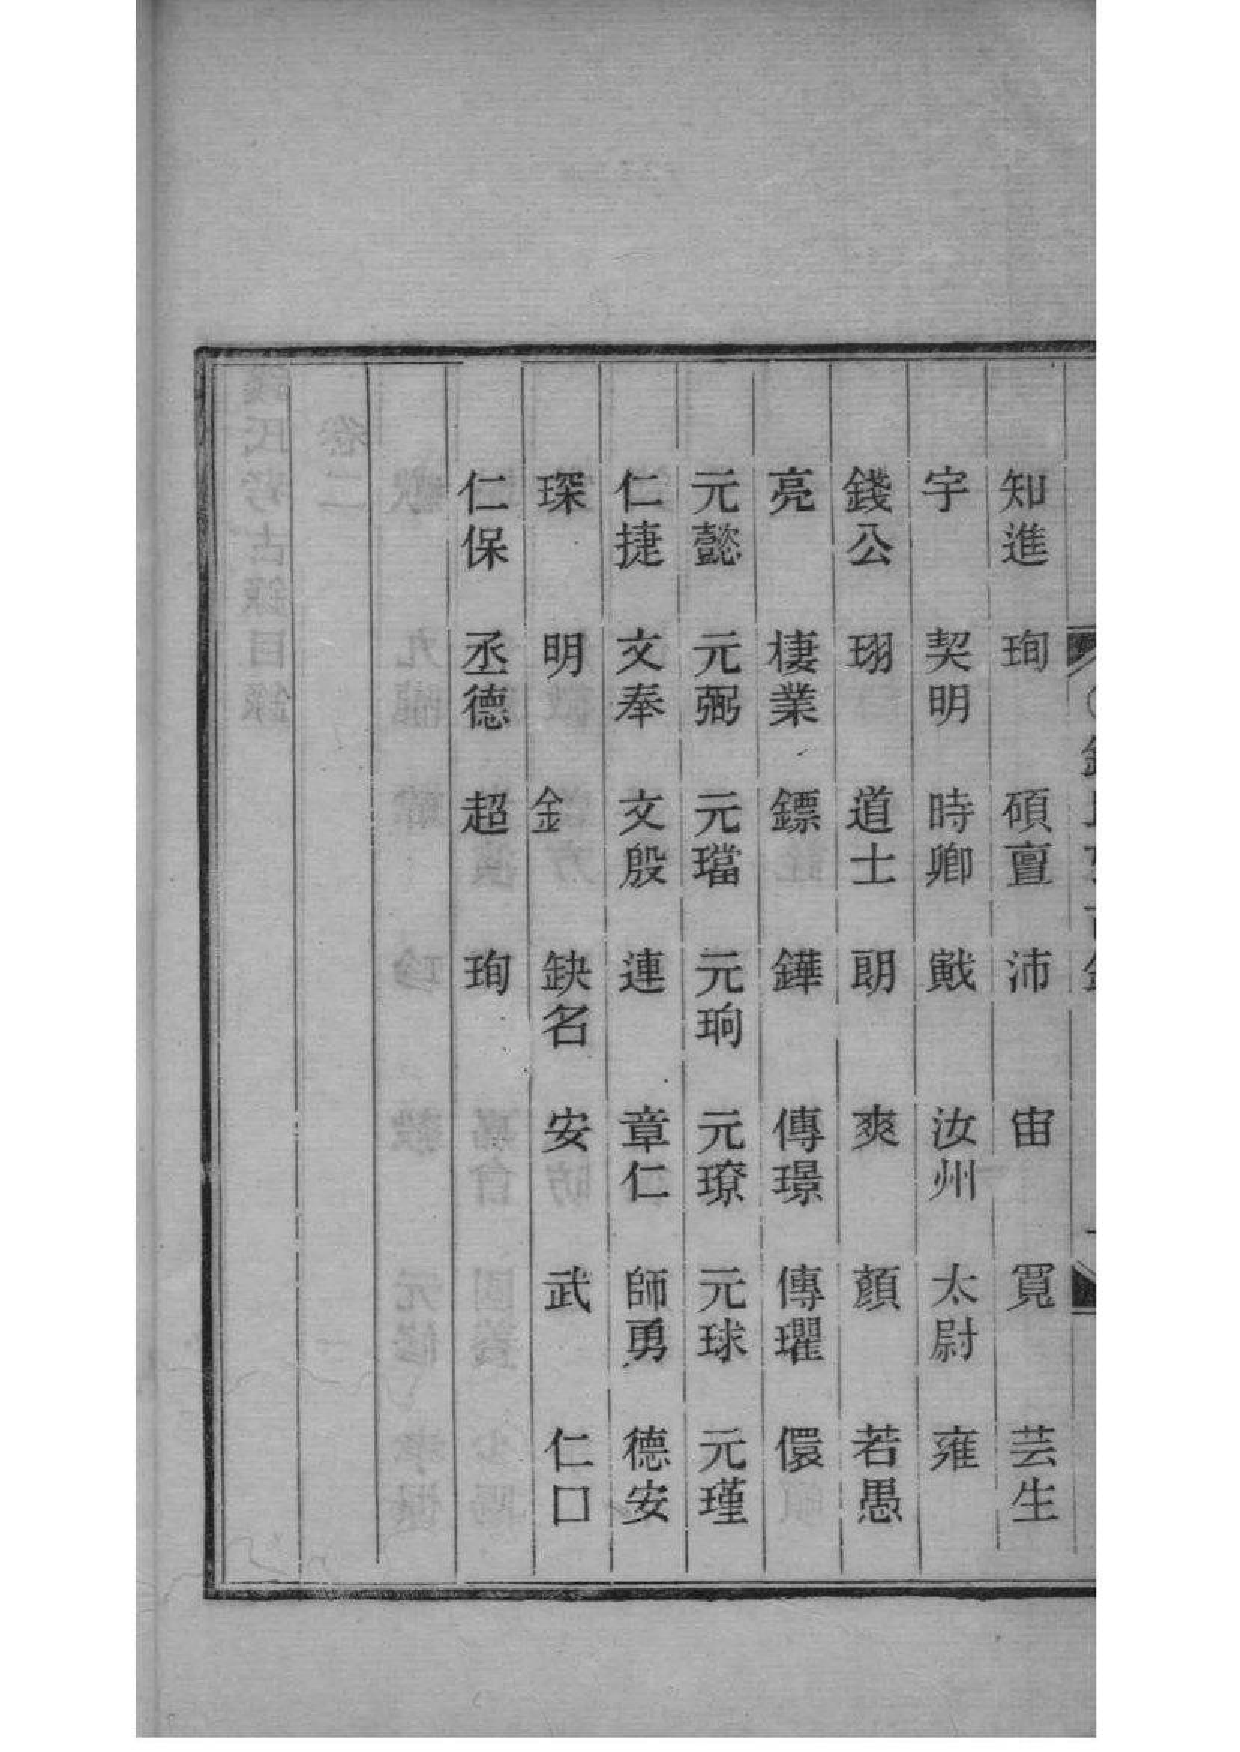 知進 珣 碩亶 沛 宙 寛 芸生
宇 契明 時卿 戭 汝州 太尉 雍
錢公 珝 道士 朗 爽 顔 若愚
亮 棲業 鏢 鏵 傳璟 傳瓘 儇
元懿 元弼 元璫 元珦 元璙 元球 元瓘
仁捷 文奉 文殷 連 章仁 師勇 德安
琛 明 釒 缺名 安 武 仁口
仁保 丞德 超 珣